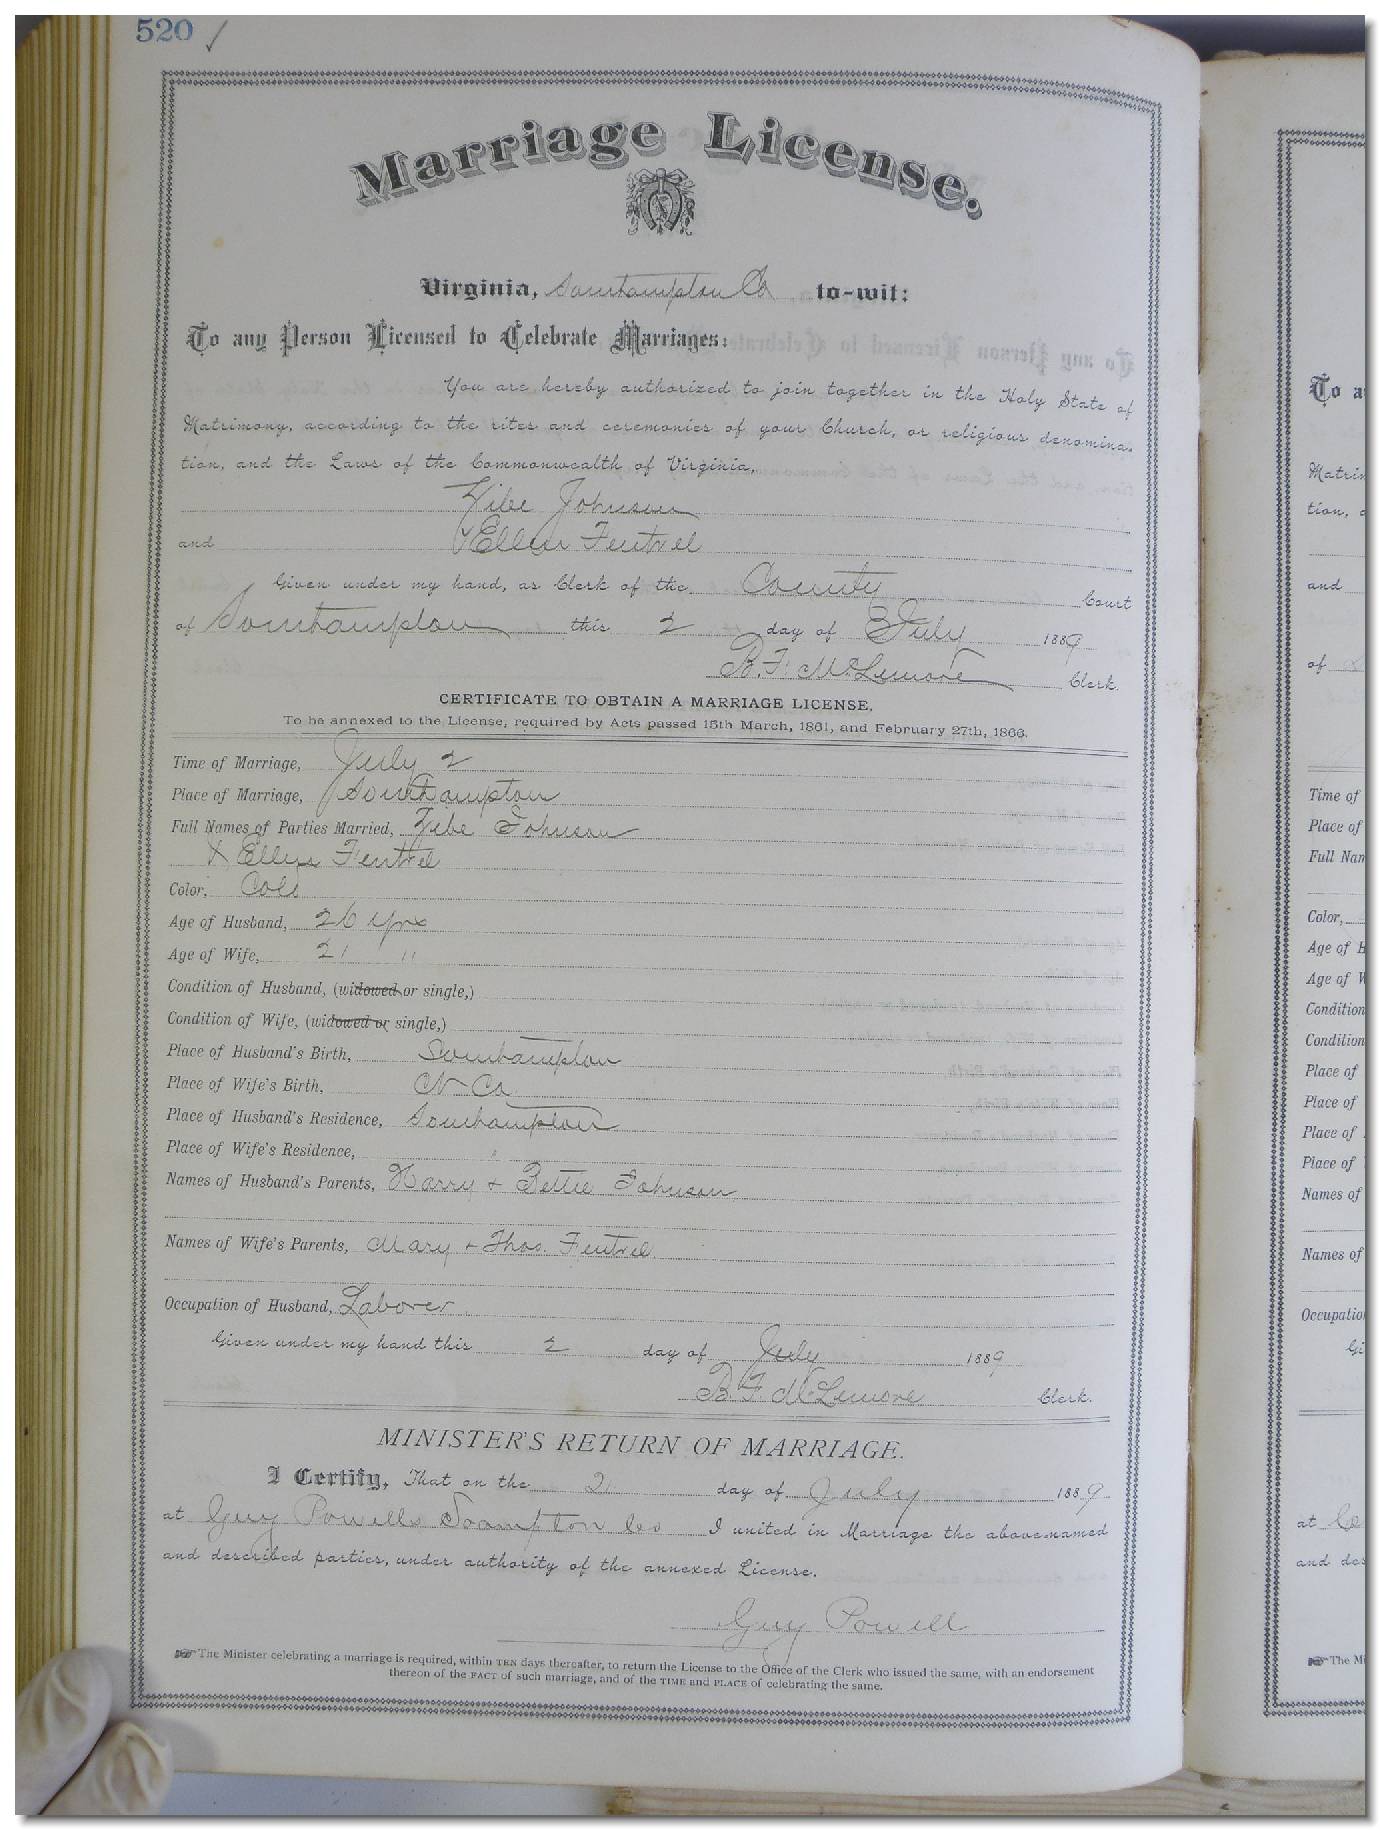 520 ✓
Marriage License.
Virginia, Southampton Co to-wit:
To any Person Licensed to Celebrate Marriages:
You are hereby authorized to join together in the Holy State of
Matrimony, according to the rites and ceremonies of your Church, or religious denomina-
tion, and the Laws of the Commonwealth of Virginia,
Johnson
and Ellen
Given under my hand, as Clerk of the County Court
of Southampton this 2 day of July 1889
B. F. McLemore Clerk.
CERTIFICATE TO OBTAIN A MARRIAGE LICENSE,
To be annexed to the License, required by Acts passed 15th March, 1861, and February 27th, 1866.
Time of Marriage, July 2
Place of Marriage, Southampton
Full Names of Parties Married, Johnson
& Ellen
Color, Cold
Age of Husband, 26 yrs
Age of Wife, 21 "
Condition of Husband, (widowed or single,)
Condition of Wife, (widowed or single,)
Place of Husband's Birth, Southampton
Place of Wife's Birth, N Ca
Place of Husband's Residence, Southampton
Place of Wife's Residence, "
Names of Husband's Parents, Harry + Bettie Johnson
Names of Wife's Parents, Mary + Thos.
Occupation of Husband, Laborer
Given under my hand this 2 day of July 1889
B. F. McLemore Clerk.
MINISTER'S RETURN OF MARRIAGE.
I Certify, That on the 2 day of July 1889
at Guy Powells Co I united in Marriage the above-named
and described parties, under authority of the annexed License.
Guy Powell
☞ The Minister celebrating a marriage is required, within TEN days thereafter, to return the License to the Office of the Clerk who issued the same, with an endorsement
thereof of the FACT of such marriage, and of the TIME and PLACE of celebrating the same.
To a
Matrim
tion,
and
of
Time of
Place of
Full Nam
Color,
Age of H
Age of W
Condition
Condition
Place of
Place of
Place of
Place of
Names of
Names of
Occupatio
Gi
at
and des
☞ The Mi